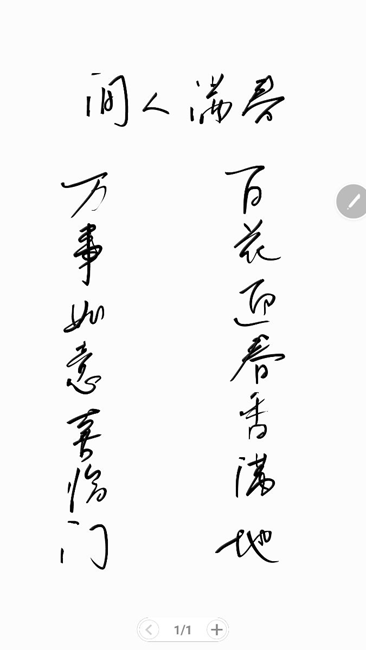 春满人间
百花迎春香满地
万事如意喜临门
1/1